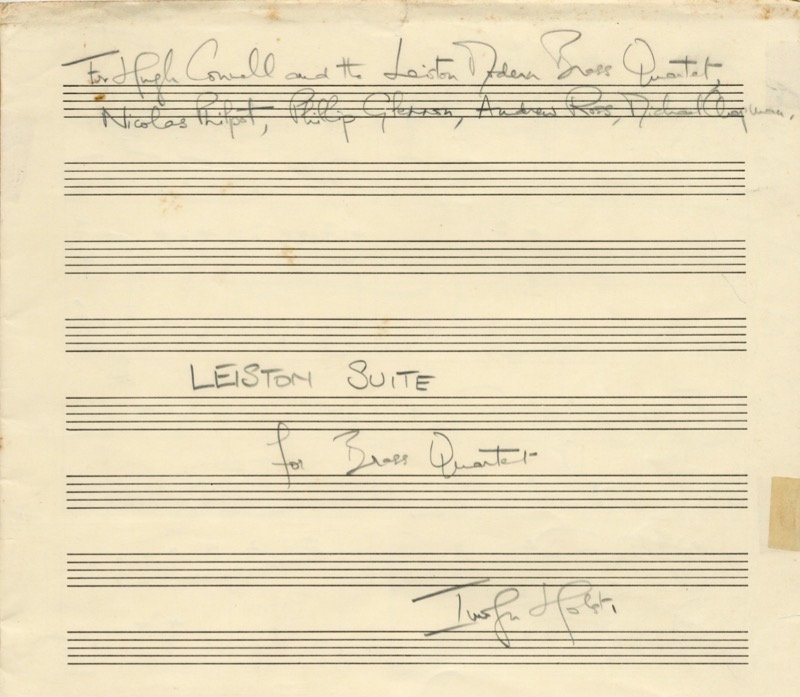 For Hugh Cowell and the Leiston Modern Brass Quartet,
Nicolas Philpot, Phillip Glennon, Andrew Ross, Michael Chapman.
LEISTON SUITE
for Brass Quartet
Imogen Holst.